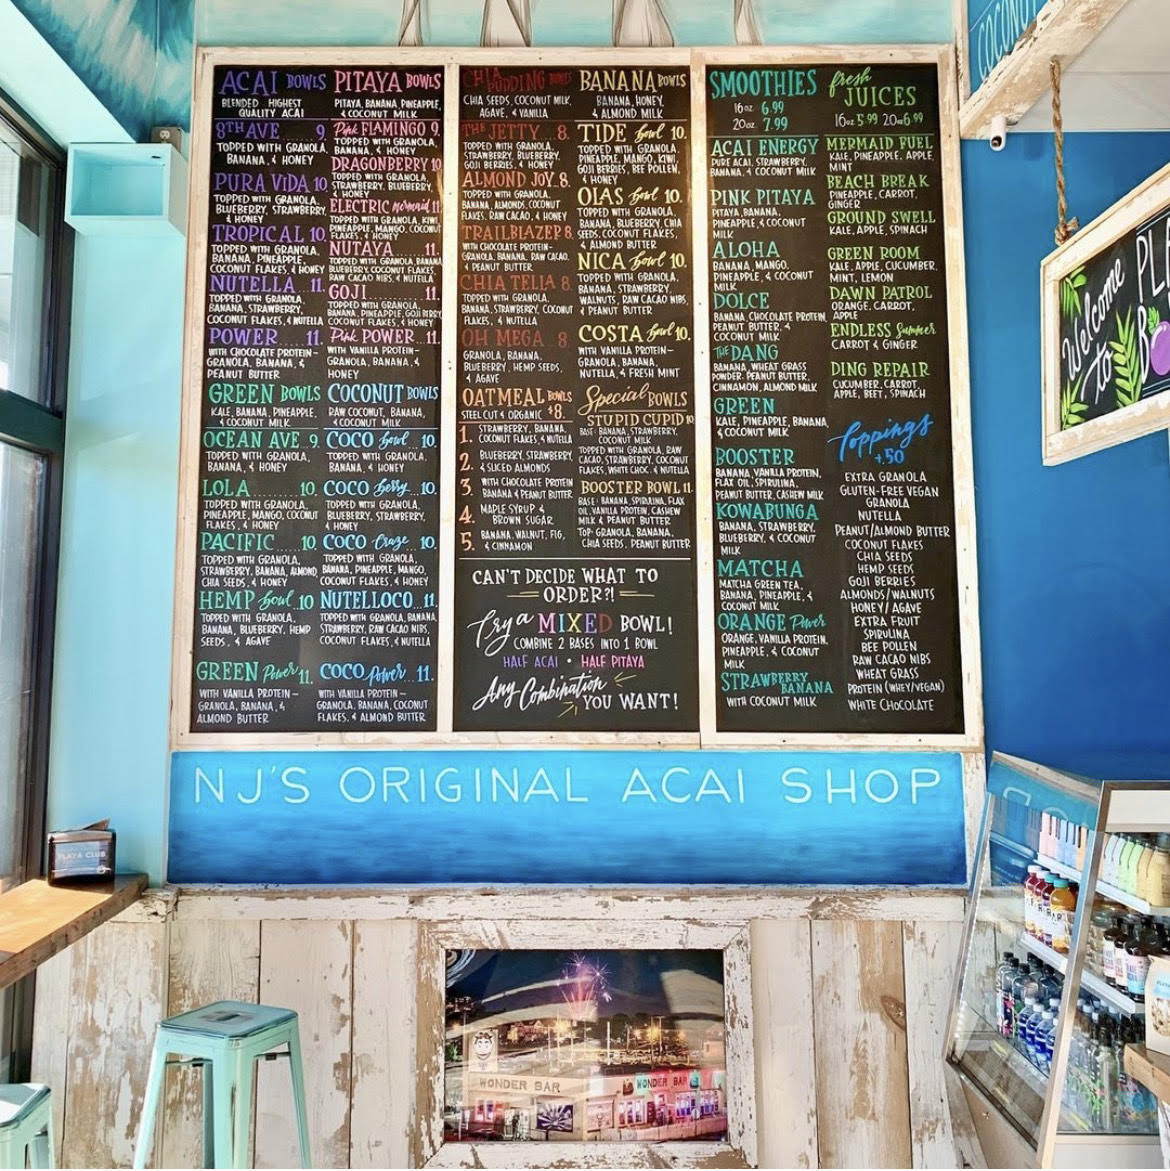 ACAI BOWLS
BLENDED HIGHEST
QUALITY ACAI
8TH AVE 9.
TOPPED WITH GRANOLA,
BANANA, & HONEY
PURA VIDA 10.
TOPPED WITH GRANOLA,
BLUEBERRY, STRAWBERRY,
& HONEY
TROPICAL 10.
TOPPED WITH GRANOLA,
BANANA, PINEAPPLE,
COCONUT FLAKES, & HONEY
NUTELLA 11.
TOPPED WITH GRANOLA,
BANANA, STRAWBERRY,
COCONUT FLAKES, & NUTELLA
POWER 11.
WITH CHOCOLATE PROTEIN-
GRANOLA, BANANA, &
PEANUT BUTTER
GREEN BOWLS
KALE, BANANA, PINEAPPLE,
& COCONUT MILK
OCEAN AVE 9.
TOPPED WITH GRANOLA,
BANANA, & HONEY
LOLA 10.
TOPPED WITH GRANOLA,
PINEAPPLE, MANGO, COCONUT
FLAKES, & HONEY
PACIFIC 10.
TOPPED WITH GRANOLA,
STRAWBERRY, BANANA, ALMOND,
CHIA SEEDS, & HONEY
HEMP Bowl 10
TOPPED WITH GRANOLA,
BANANA, BLUEBERRY, HEMP
SEEDS, & AGAVE
GREEN Power 11.
WITH VANILLA PROTEIN-
GRANOLA, BANANA, &
ALMOND BUTTER
PITAYA BOWLS
PITAYA, BANANA, PINEAPPLE,
& COCONUT MILK
Pink FLAMINGO 9.
TOPPED WITH GRANOLA,
BANANA, & HONEY
DRAGONBERRY 10
TOPPED WITH GRANOLA,
STRAWBERRY, BLUEBERRY,
& HONEY
ELECTRIC mermaid 11
TOPPED WITH GRANOLA, KIWI,
PINEAPPLE, MANGO, COCONUT
FLAKES, & HONEY
NUTAYA 11.
TOPPED WITH GRANOLA, BANANA,
BLUEBERRY, COCONUT FLAKES,
RAW CACAO NIBS, & NUTELLA
GOJI 11.
TOPPED WITH GRANOLA,
BANANA, PINEAPPLE, GOJI BERRY,
COCONUT FLAKES, & HONEY
Pink POWER 11.
WITH VANILLA PROTEIN-
GRANOLA, BANANA, &
HONEY
COCONUT BOWLS
RAW COCONUT, BANANA,
& COCONUT MILK
COCO Bowl 10.
TOPPED WITH GRANOLA,
BANANA, & HONEY
COCO Berry 10.
TOPPED WITH GRANOLA,
BLUEBERRY, STRAWBERRY,
& HONEY
COCO Craze 10.
TOPPED WITH GRANOLA,
BANANA, PINEAPPLE, MANGO,
COCONUT FLAKES, & HONEY
NUTELLOCO 11.
TOPPED WITH GRANOLA, BANANA,
STRAWBERRY, RAW CACAO NIBS,
COCONUT FLAKES, & NUTELLA
COCO Power 11.
WITH VANILLA PROTEIN-
GRANOLA, BANANA, COCONUT
FLAKES, & ALMOND BUTTER
CHIA PUDDING BOWLS
CHIA SEEDS, COCONUT MILK,
AGAVE, & VANILLA
THE JETTY 8.
TOPPED WITH GRANOLA,
STRAWBERRY, BLUEBERRY,
GOJI BERRIES, & HONEY
ALMOND JOY 8.
TOPPED WITH GRANOLA,
BANANA, ALMONDS, COCONUT
FLAKES, RAW CACAO, & HONEY
TRAILBLAZER 8.
WITH CHOCOLATE PROTEIN-
GRANOLA, BANANA, RAW CACAO,
& PEANUT BUTTER
CHIA TELLA 8.
TOPPED WITH GRANOLA,
STRAWBERRY, COCONUT
FLAKES, & NUTELLA
OH MEGA 8.
GRANOLA, BANANA,
BLUEBERRY, HEMP SEEDS,
& AGAVE
OATMEAL BOWLS
STEEL CUT & ORGANIC $8.
1. STRAWBERRY, BANANA,
COCONUT FLAKES, & NUTELLA
2. BLUEBERRY, STRAWBERRY,
& SLICED ALMONDS
3. WITH CHOCOLATE PROTEIN
BANANA & PEANUT BUTTER
4. MAPLE SYRUP &
BROWN SUGAR
5. BANANA, WALNUT, FIG,
& CINNAMON
BANANA BOWLS
BANANA, HONEY,
& ALMOND MILK
TIDE Bowl 10.
TOPPED WITH GRANOLA,
PINEAPPLE, MANGO, KIWI,
GOJI BERRIES, BEE POLLEN,
& HONEY
OLAS Bowl 10.
TOPPED WITH GRANOLA,
BANANA, BLUEBERRY, CHIA
SEEDS, COCONUT FLAKES,
& ALMOND BUTTER
NICA Bowl 10.
TOPPED WITH GRANOLA,
BANANA, STRAWBERRY,
WALNUTS, RAW CACAO NIBS,
& PEANUT BUTTER
COSTA Bowl 10.
WITH VANILLA PROTEIN-
GRANOLA, BANANA,
NUTELLA, & FRESH MINT
Special BOWLS
STUPID CUPID 10
BASE: BANANA, STRAWBERRY,
COCONUT MILK
TOPPED WITH GRANOLA, RAW
CACAO, STRAWBERRY, COCONUT
FLAKES, WHITE CHOC. & NUTELLA
BOOSTER BOWL 11.
BASE: BANANA, SPIRULINA, FLAX
OIL, VANILLA PROTEIN, CASHEW
MILK & PEANUT BUTTER
TOP: GRANOLA, BANANA,
CHIA SEEDS, PEANUT BUTTER
CAN'T DECIDE WHAT TO
ORDER?!
Try a MIXED BOWL!
COMBINE 2 BASES INTO 1 BOWL
HALF ACAI • HALF PITAYA
Any Combination
YOU WANT!
SMOOTHIES
16 oz 6.99
20 oz. 7.99
ACAI ENERGY
PURE ACAI, STRAWBERRY,
BANANA, & COCONUT MILK
PINK PITAYA
PITAYA, BANANA,
PINEAPPLE, & COCONUT
MILK
ALOHA
BANANA, MANGO,
PINEAPPLE, & COCONUT
MILK
DOLCE
BANANA, CHOCOLATE PROTEIN,
PEANUT BUTTER, &
COCONUT MILK
THE DANG
BANANA, WHEAT GRASS
POWDER, PEANUT BUTTER,
CINNAMON, ALMOND MILK
GREEN
KALE, PINEAPPLE, BANANA,
& COCONUT MILK
BOOSTER
BANANA, VANILLA PROTEIN,
FLAX OIL, SPIRULINA,
PEANUT BUTTER, CASHEW MILK
KOWABUNGA
BANANA, STRAWBERRY,
BLUEBERRY, & COCONUT
MILK
MATCHA
MATCHA GREEN TEA,
BANANA, PINEAPPLE, &
COCONUT MILK
ORANGE Power
ORANGE, VANILLA PROTEIN,
PINEAPPLE, & COCONUT
MILK
STRAWBERRY
BANANA
WITH COCONUT MILK
fresh
JUICES
16oz 5.99 20oz 6.99
MERMAID FUEL
KALE, PINEAPPLE, APPLE,
MINT
BEACH BREAK
PINEAPPLE, CARROT,
GINGER
GROUND SWELL
KALE, APPLE, SPINACH
GREEN ROOM
KALE, APPLE, CUCUMBER,
MINT, LEMON
DAWN PATROL
ORANGE, CARROT,
APPLE
ENDLESS Summer
CARROT & GINGER
DING REPAIR
CUCUMBER, CARROT,
APPLE, BEET, SPINACH
Toppings
+.50
EXTRA GRANOLA
GLUTEN-FREE VEGAN
GRANOLA
NUTELLA
PEANUT/ALMOND BUTTER
COCONUT FLAKES
CHIA SEEDS
HEMP SEEDS
GOJI BERRIES
ALMONDS/WALNUTS
HONEY/AGAVE
EXTRA FRUIT
SPIRULINA
BEE POLLEN
RAW CACAO NIBS
WHEAT GRASS
PROTEIN (WHEY/VEGAN)
WHITE CHOCOLATE
COCONUT
Welcome
to
NJ'S ORIGINAL ACAI SHOP
PLAYA CLUB
WONDER BAR
WONDER BAR